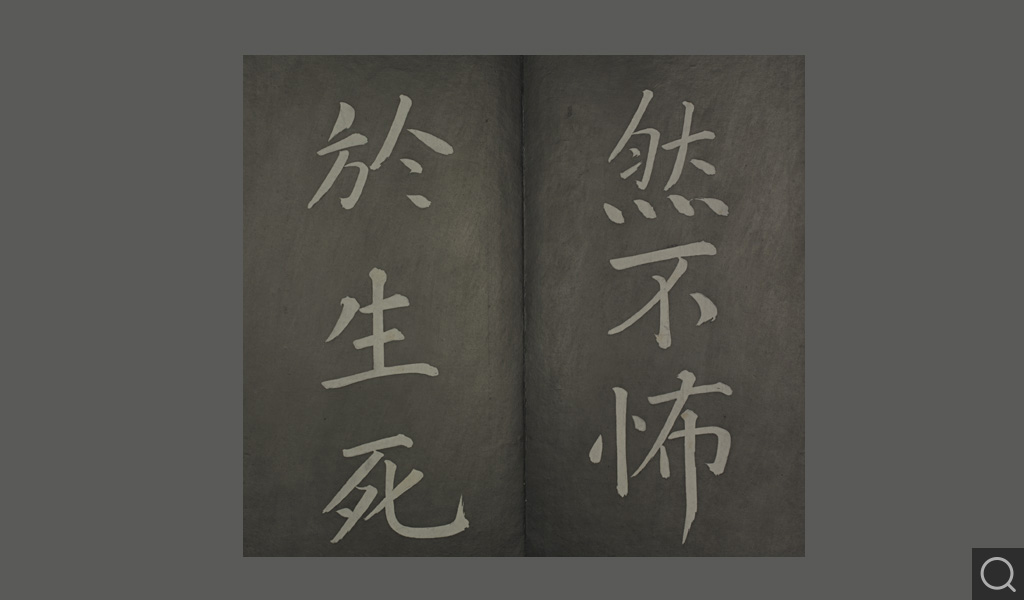 然不怖
於生死